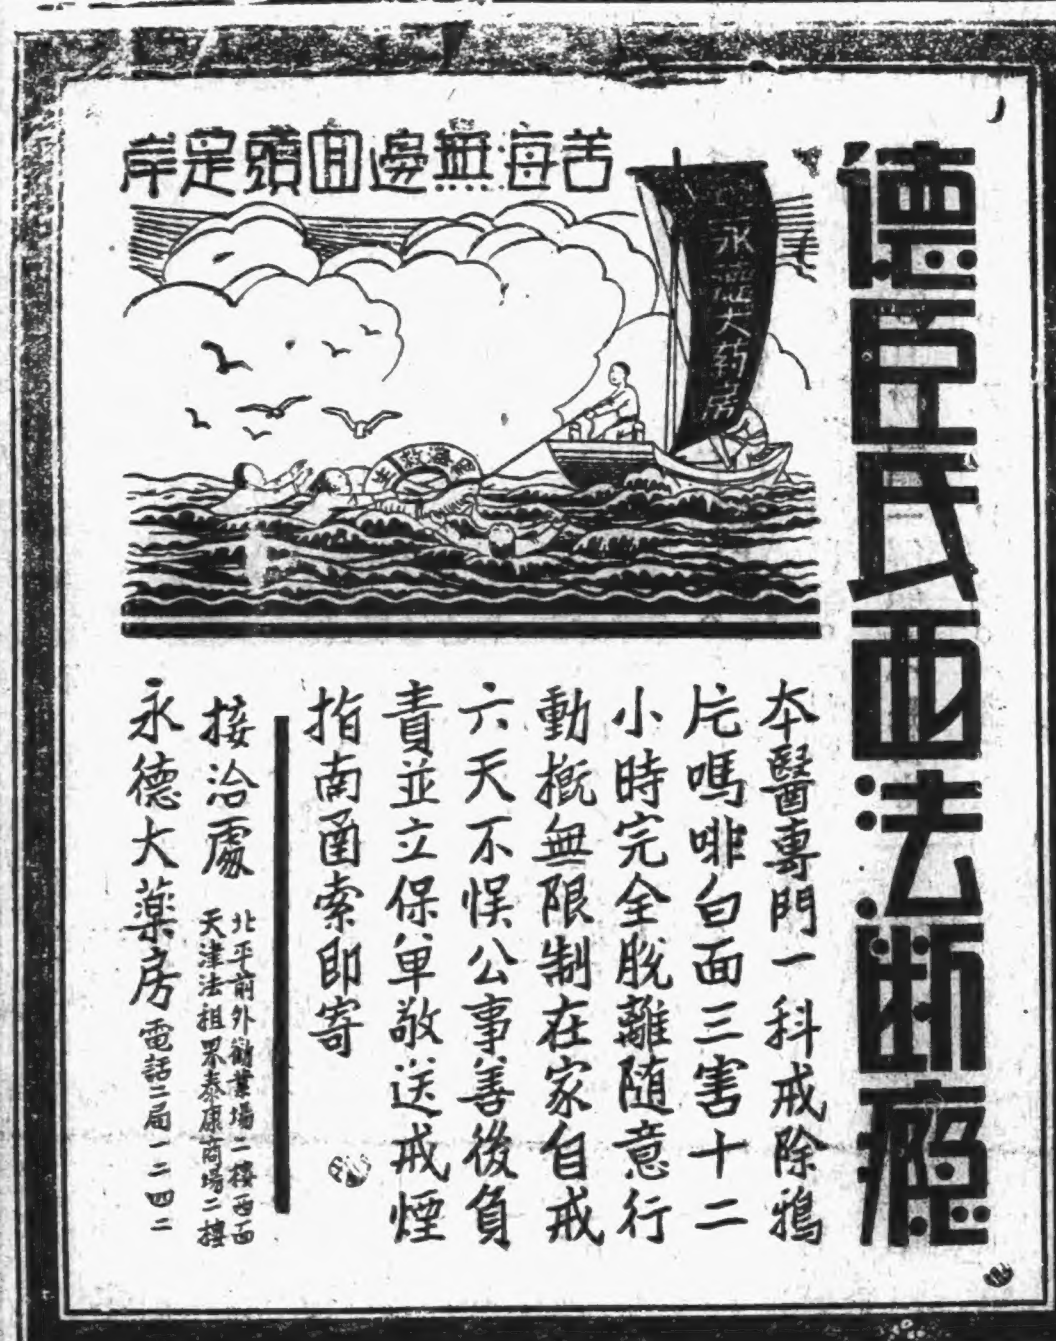 德臣氏西法断瘾
苦海無邊回頭是岸
永德大药房
救生
本醫專門一科戒除鴉
片嗎啡白面三害十二
小時完全脫離随意行
動概無限制在家自戒
六天不悮公事善後負
責並立保单敬送戒煙
指南函索即寄
接洽處
北平前外劝業場二樓西面
天津法祖界泰康商場二樓
永德大薬房電話二局一二四二